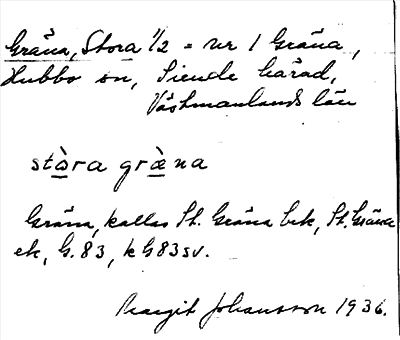 Gräna, Stora 1/2 = nr 1 Gräna,
Hubbo sn, Siende härad,
Västmanlands län
stò̱ra græ̱̀na
Gräna, kallas St. Gräna bek, St. Gräna
ek, G. 83, k G 83 sv.
Margit Johansson 1936.